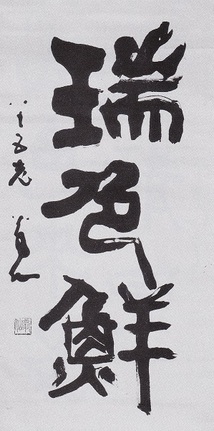 瑞色鮮
八十五老